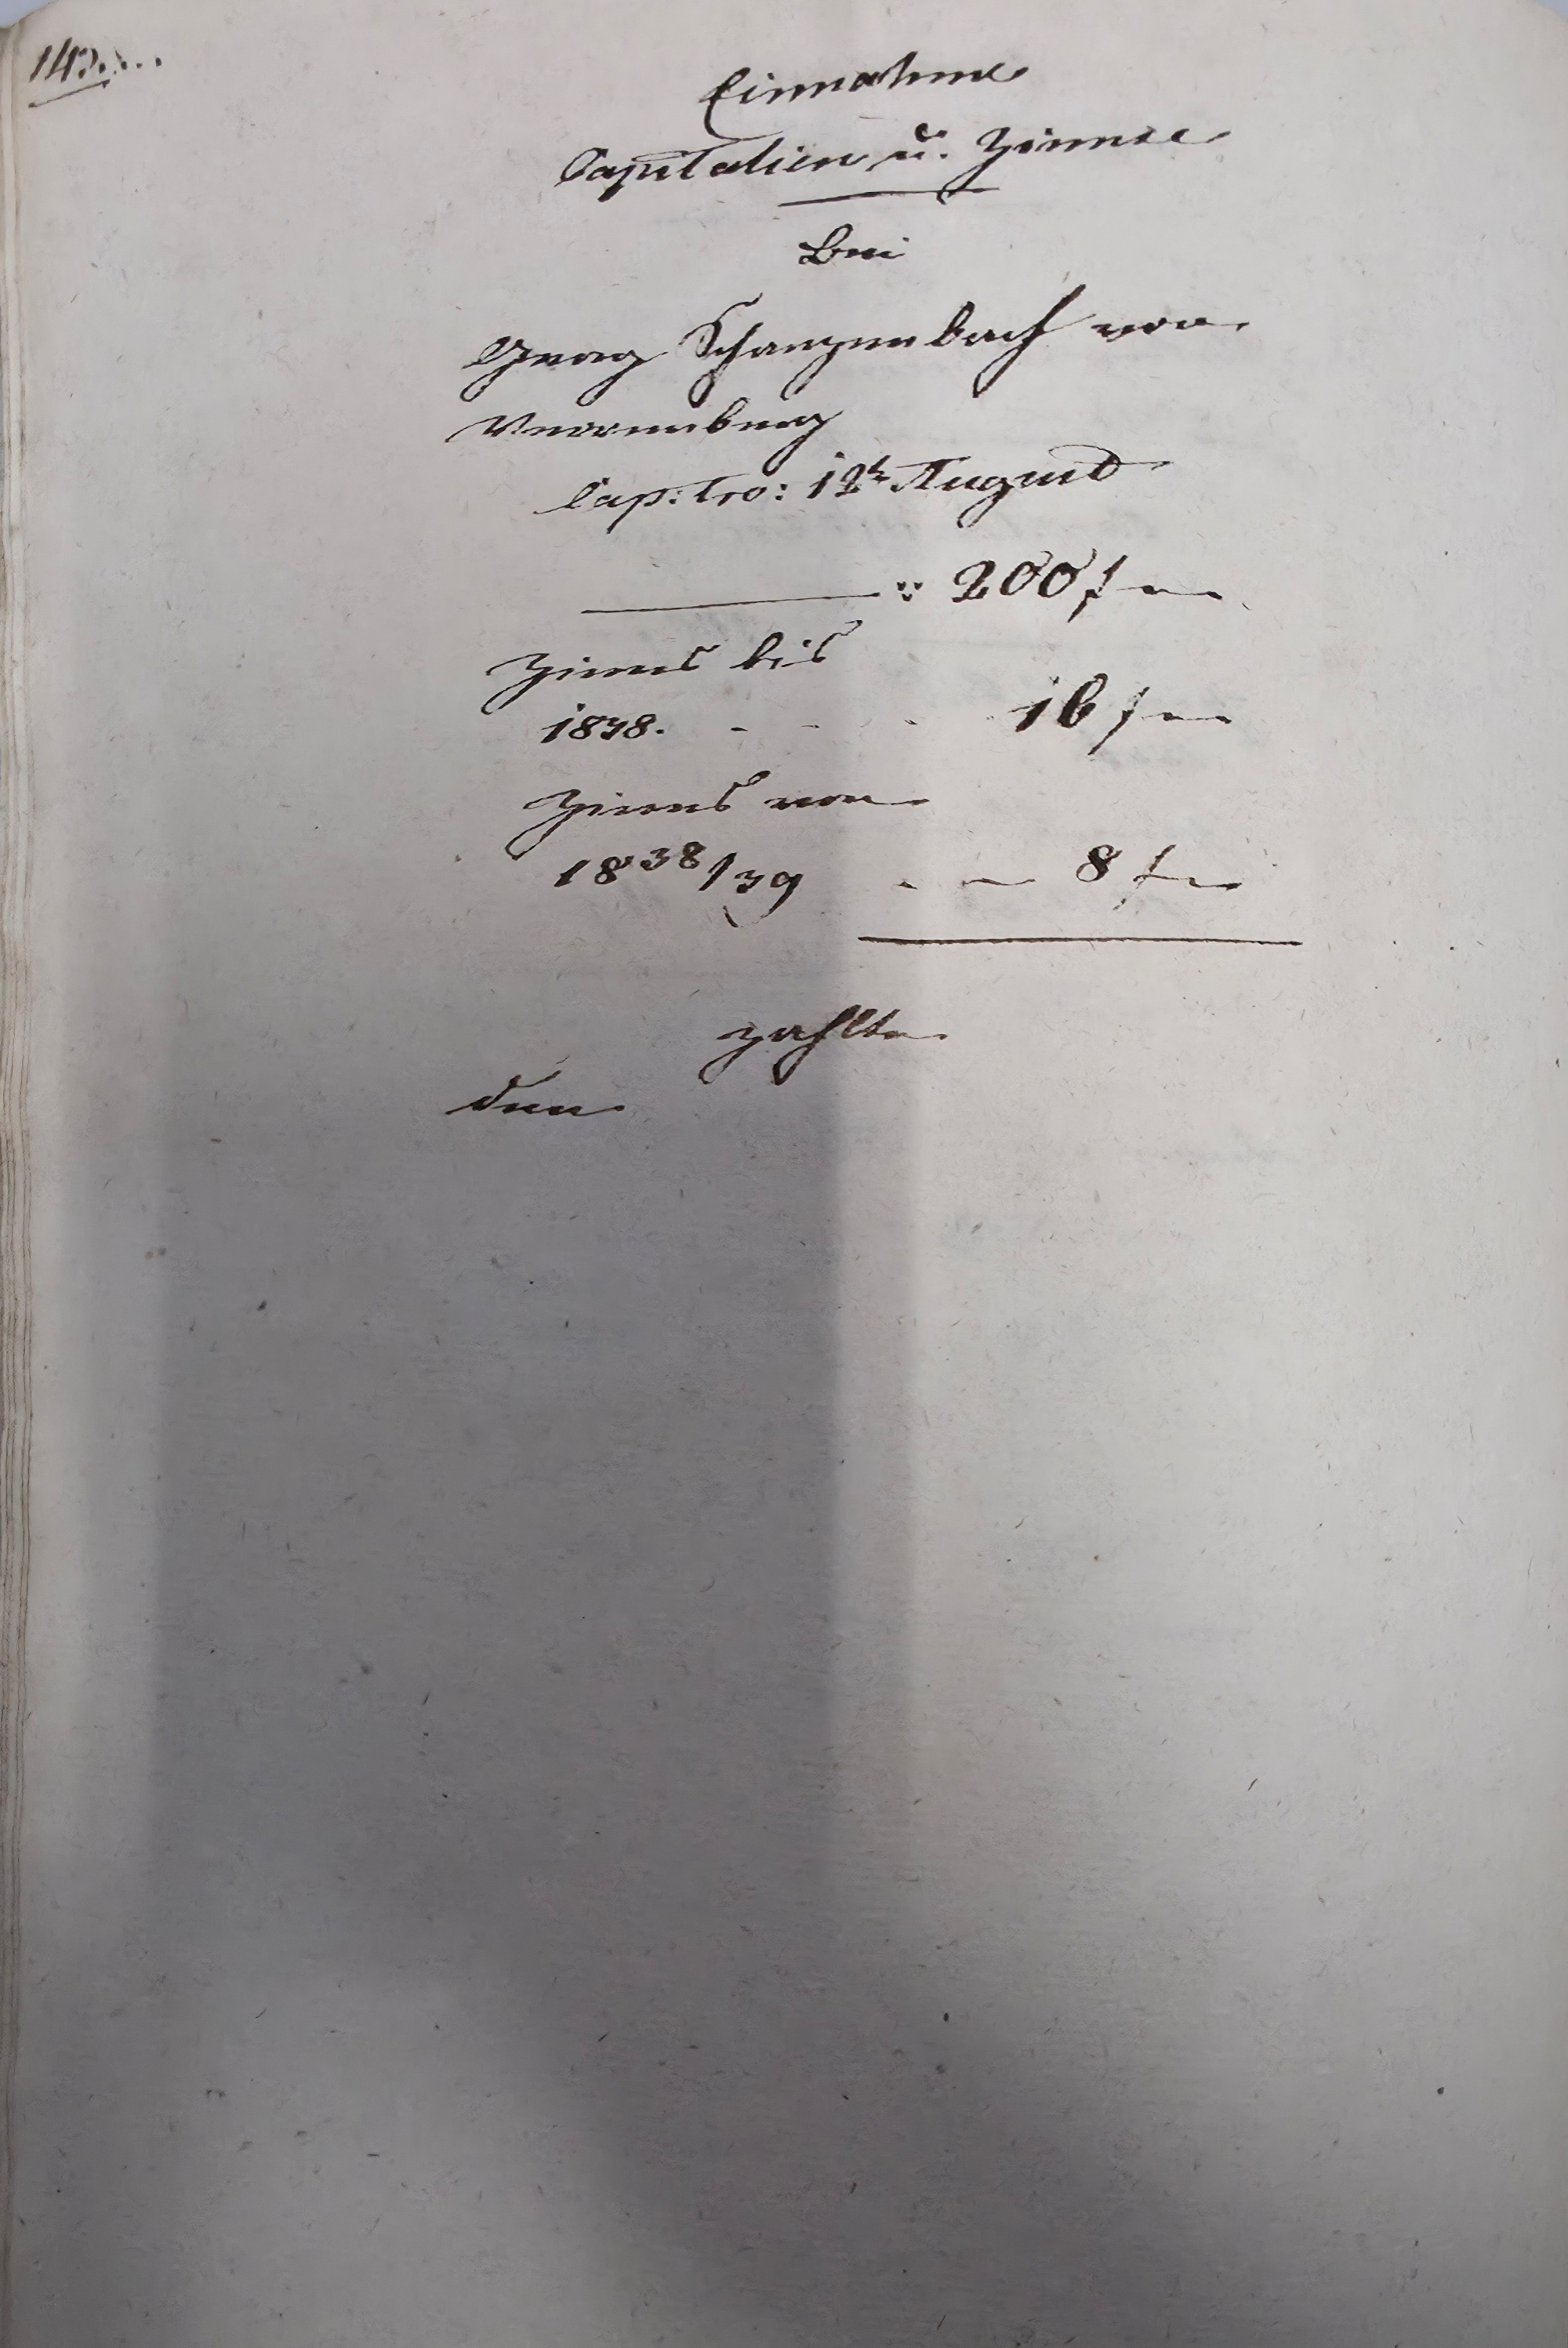 Einnahme
Capitalien u. Zinnse
Bei
Georg Schanzenbach von
Cap: tro: 12t August
200 f
Zinns bis
1838. 16 f
Zinns von
1838/39 8 f
zahlte
den